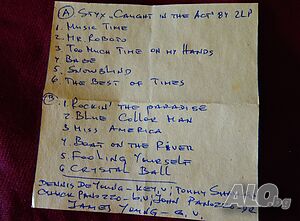 A STYX „CAUGHT IN THE ACT" 84 2LP
1. MUSIC TIME
2. MR. ROBOTO
3. TOO MUCH TIME ON MY HANDS
4 BABE
5. SNOWBLIND
6. THE BEST OF TIMES
B
1. ROCKIN' THE PARADISE
2 BLUE COLLOR MAN
3 MISS AMERICA
4 BOAT ON THE RIVER
5 FOOLING YOURSELF
6 CRYSTAL BALL
DENNIS DE YOUNG - KEY, V; TOMMY
CHUCK PANOZZO - G, V; JOHN PANOZZO - DR
JAMES YOUNG - G. V.
ALO.bg